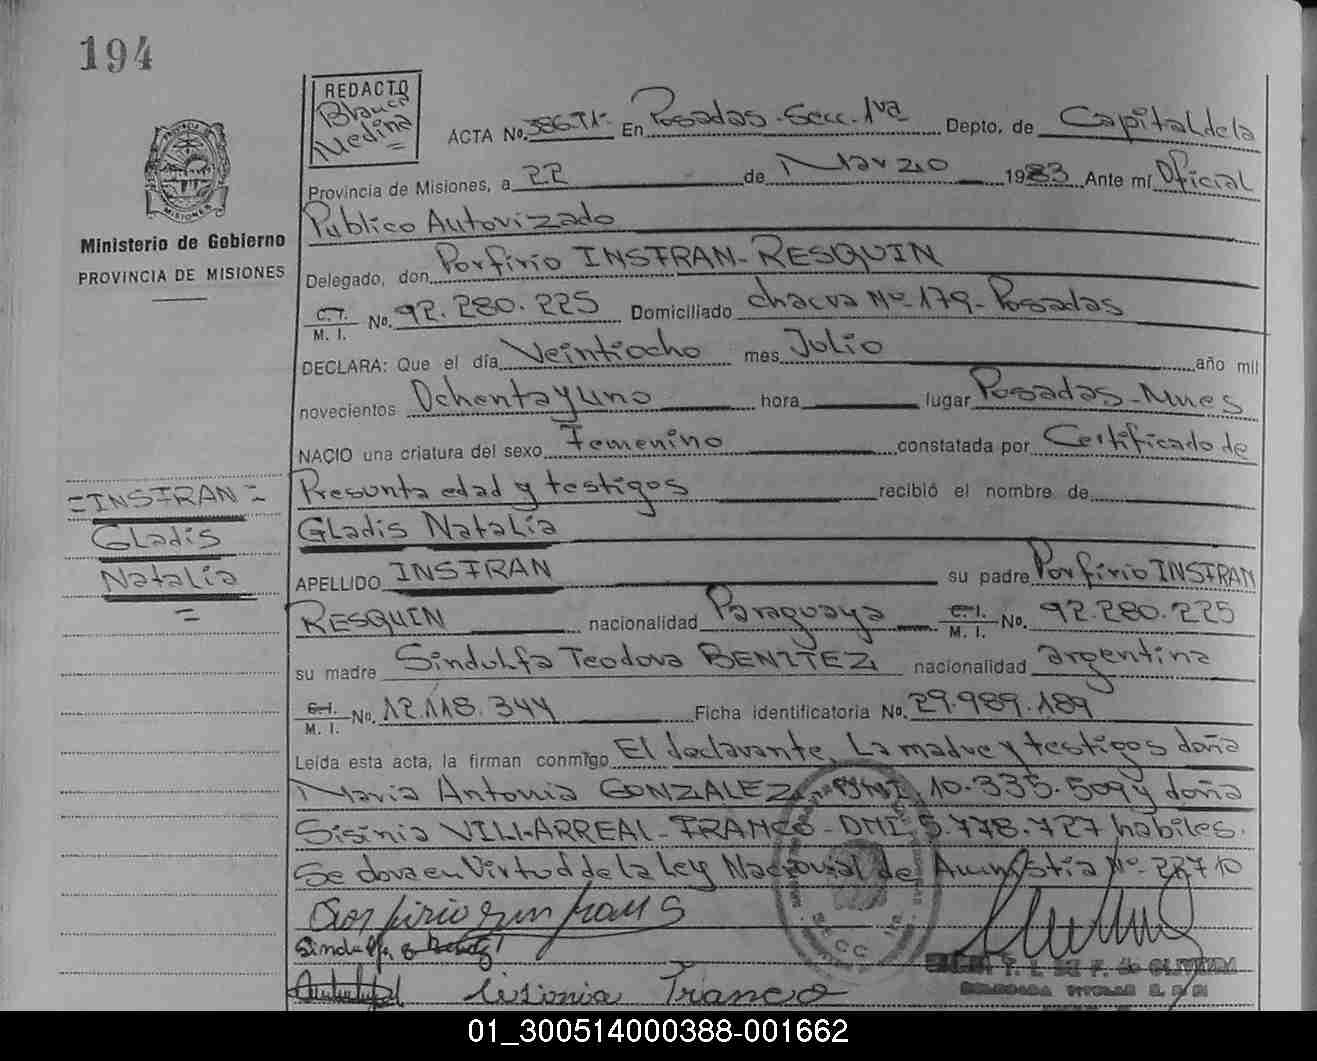 194
REDACTO
Blanca
Medina
ACTA No. 386 T1- En Posadas-Secc. 1ra Depto. de Capital de la
Provincia de Misiones, a 22 de Marzo 1983 Ante mí Oficial
MISIONES
Ministerio de Gobierno
PROVINCIA DE MISIONES
Publico Autorizado
Delegado, don Porfirio INSFRAN-RESQUIN
C.I. M. I. No. 92.280.225 Domiciliado chacra Nº-179-Posadas
DECLARA: Que el día Veintiocho mes Julio año mil
novecientos Ochentayuno hora lugar Posadas-Mnes
NACIO una criatura del sexo Femenino constatada por Certificado de
Presunta edad y testigos recibió el nombre de
Gladis Natalia
=INSFRAN=
Gladis
Natalia
=
APELLIDO INSFRAN su padre Porfirio INSFRAN
RESQUIN nacionalidad Paraguaya C.I. M. I. No. 92.280.225
su madre Sindulfa Teodora BENITEZ nacionalidad argentina
C.I. M. I. No. 12.118.344 Ficha identificatoria No. 29.989.189
Leída esta acta, la firman conmigo El declarante, La madre y testigos doña
Maria Antonia GONZALEZ 10.335.509 y doña
Sisinia VILLARREAL-FRANCO-DMI 5.778.727 habiles.
Se dora en Virtud de la Ley Nacional de Amnistia Nº-22710
Sindulfa
Franco
DELEGADA TITULAR
01_300514000388-001662